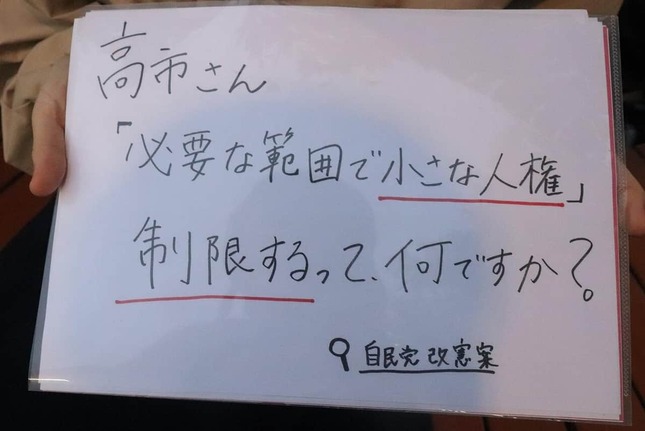 高市さん
「必要な範囲で小さな人権」
制限するって、何ですか?
自民党 改憲案